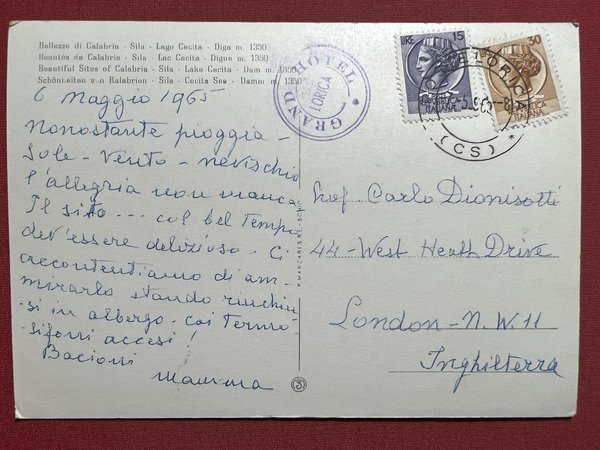 Bellezze di Calabria - Sila - Lago Cecita - Diga m. 1350
Beautés de Calabre - Sila - Lac Cecita - Digue m. 1350
Beautiful Sites of Calabria - Sila - Lake Cecita - Dam m. 1350
Schönheiten von Kalabrien - Sila - Cecita See - Damm m. 1350
6 Maggio 1965
Nonostante pioggia -
Sole - Vento - nevischio
l'allegria non manca
Il sito --- col bel tempo
dev'essere delizioso - Ci
accontentiamo di am-
mirarlo stando rinchiu-
si in albergo - coi termo-
sifoni accesi!
Bacioni
mamma
GRAND HÔTEL
LORICA
L. 15
30
ITALIANE
LORICA
(CS)
P. MARZARI S.R.L. - SCHIO
Prof. Carlo Dionisotti
44 - West Heath Drive
London - N.W. 11
Inghilterra